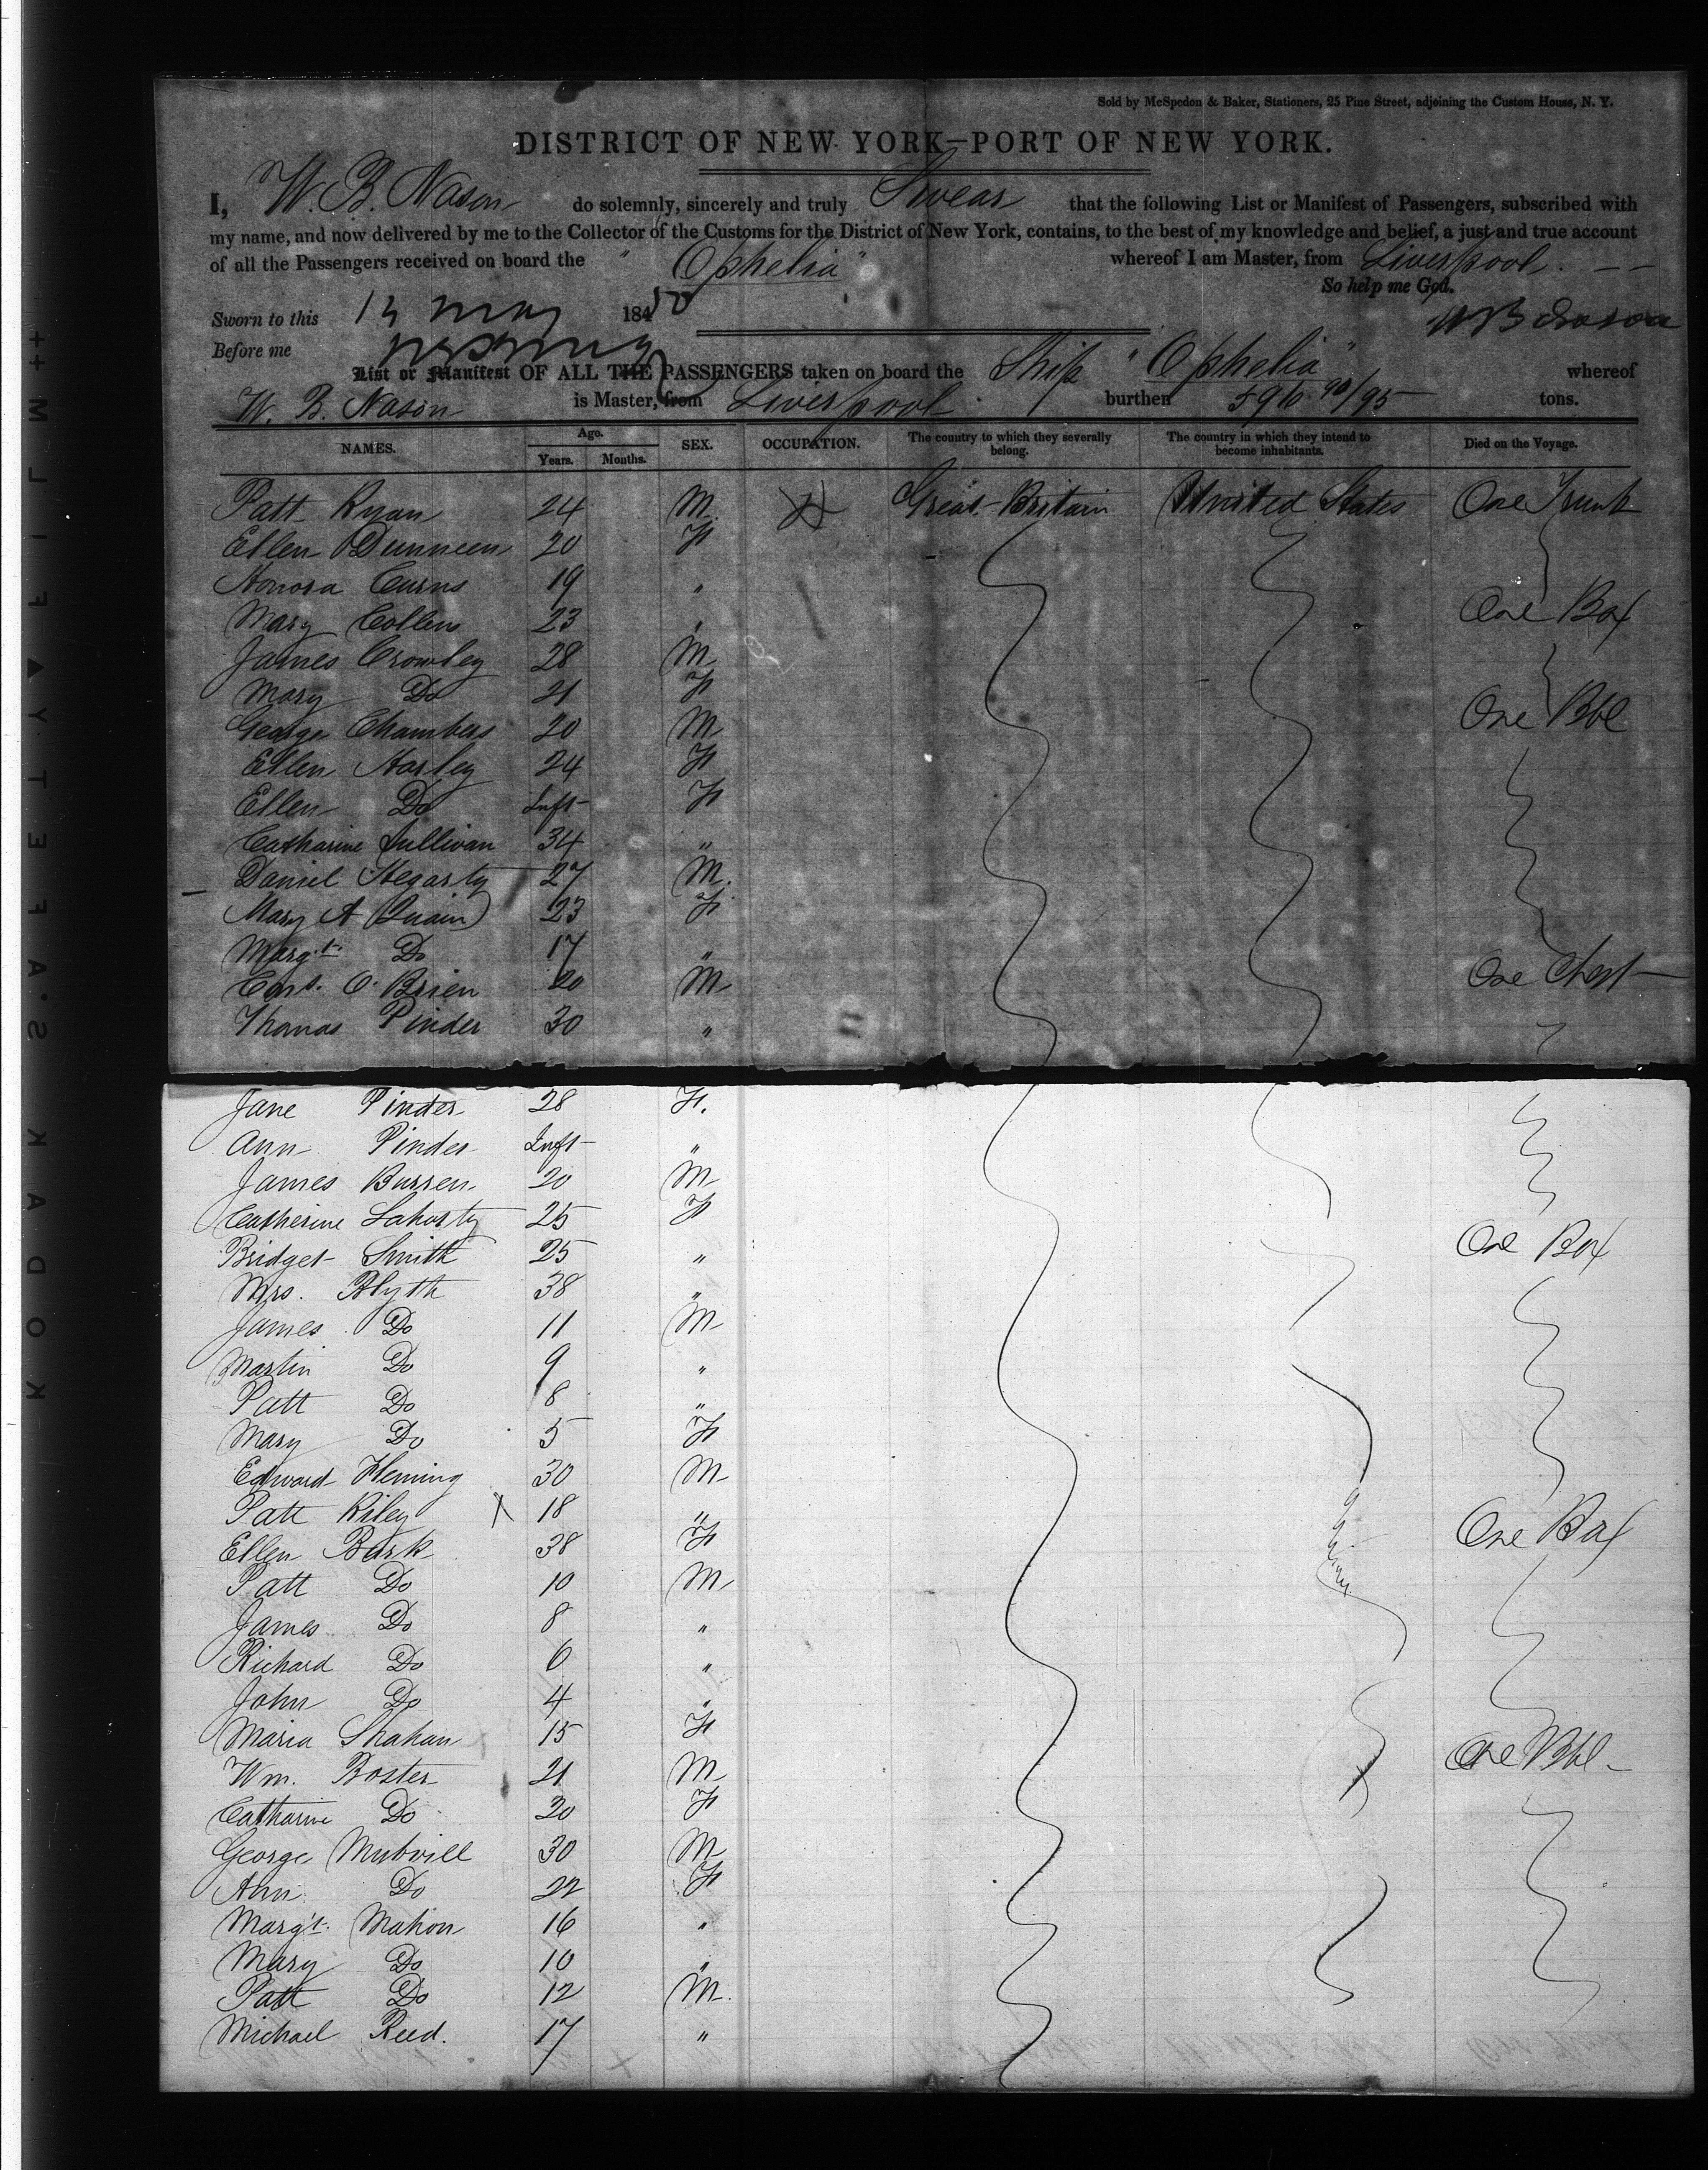 Sold by McSpedon & Baker, Stationers, 25 Pine Street, adjoining the Custom House, N. Y.
DISTRICT OF NEW YORK—PORT OF NEW YORK.
I, W. B. Nason do solemnly, sincerely and truly Swear that the following List or Manifest of Passengers, subscribed with
my name, and now delivered by me to the Collector of the Customs for the District of New York, contains, to the best of my knowledge and belief, a just and true account
of all the Passengers received on board the "Ophelia" whereof I am Master, from Liverpool. — —
So help me God.
Sworn to this 13 May 1850 W B Nason
Before me
List or Manifest OF ALL THE PASSENGERS taken on board the Ship "Ophelia" whereof
W. B. Nason is Master, from Liverpool burthen 596 90/95 tons.
NAMES. Age. Years. Months. SEX. OCCUPATION. The country to which they severally belong. The country in which they intend to become inhabitants. Died on the Voyage.
Patt Ryan 24 M Great Britain United States One Trunk
Ellen Dunneen 20 F
Honora Curns 19 "
Mary Collens 23 " One Box
James Crowley 28 M
Mary Do 21 F
George Chambers 20 M One Bbl
Ellen Harley 24 F
Ellen Do Inft F
Catharine Sullivan 34 "
Daniel Hegarty 27 M
Mary A Quain 23 F
Margt. Do 17 "
O'Brien 20 M One Chest
Thomas Pinder 30 "
Jane Pinder 28 F.
Ann Pinder Inft "
James Burren 20 M
Catherine Lahorty 25 F
Bridget Smith 25 " One Box
Mrs. Blyth 38 "
James Do 11 M
Martin Do 9 "
Patt Do 8 "
Mary Do 5 F
Edward Fleming 30 M
Patt Riley X 18 " One Box
Ellen Bark 38 F
Patt Do 10 M
James Do 8 "
Richard Do 6 "
John Do 4 "
Maria Shahan 15 F
Wm. Boster 21 M One Bbl
Catharine Do 20 F
George 30 M
Ann Do 22 F
Margt. Mahon 16 "
Mary Do 10 "
Patt Do 12 M.
Michael Reed. 17 "
KODAK SAFETY FILM